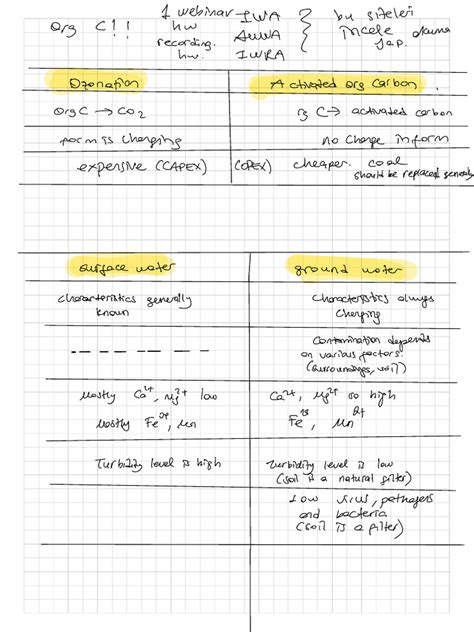 Org C!! 1 webinar IWA bu siteleri
hw AWWA incele okuma
recording. yap.
hw. IWRA
Ozonation Activated Org Carbon
Org C → CO2 rg C → activated carbon
form is changing no change in form
expensive (CAPEX) (OPEX) cheaper. coal
should be replaced generally
surface water ground water
characteristics generally Characteristics always
known changing
Contamination depends
on various factors.
(surroundings, soil)
Mostly Ca2+, Mg2+ low Ca2+, Mg2+ so high
Mostly Fe, Mn Fe, Mn
Turbidity level is high Turbidity level is low
(soil is a natural filter)
Low virus, pathogens
and bacteria
(soil is a filter)